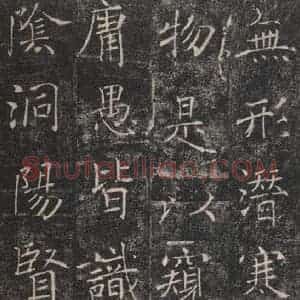 無形潛寒
物是以窺
庸愚皆識
陰洞陽賢
Shufaziliao.COM